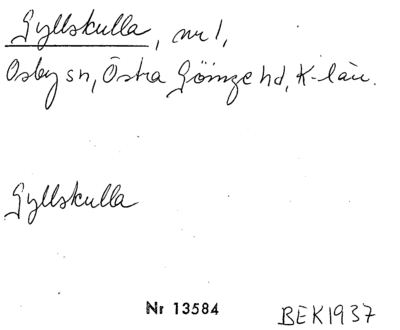 Gyllskulla, nr 1,
Osby sn, Östra Göinge hd, K-län.
Gyllskulla
Nr 13584 BEK1937